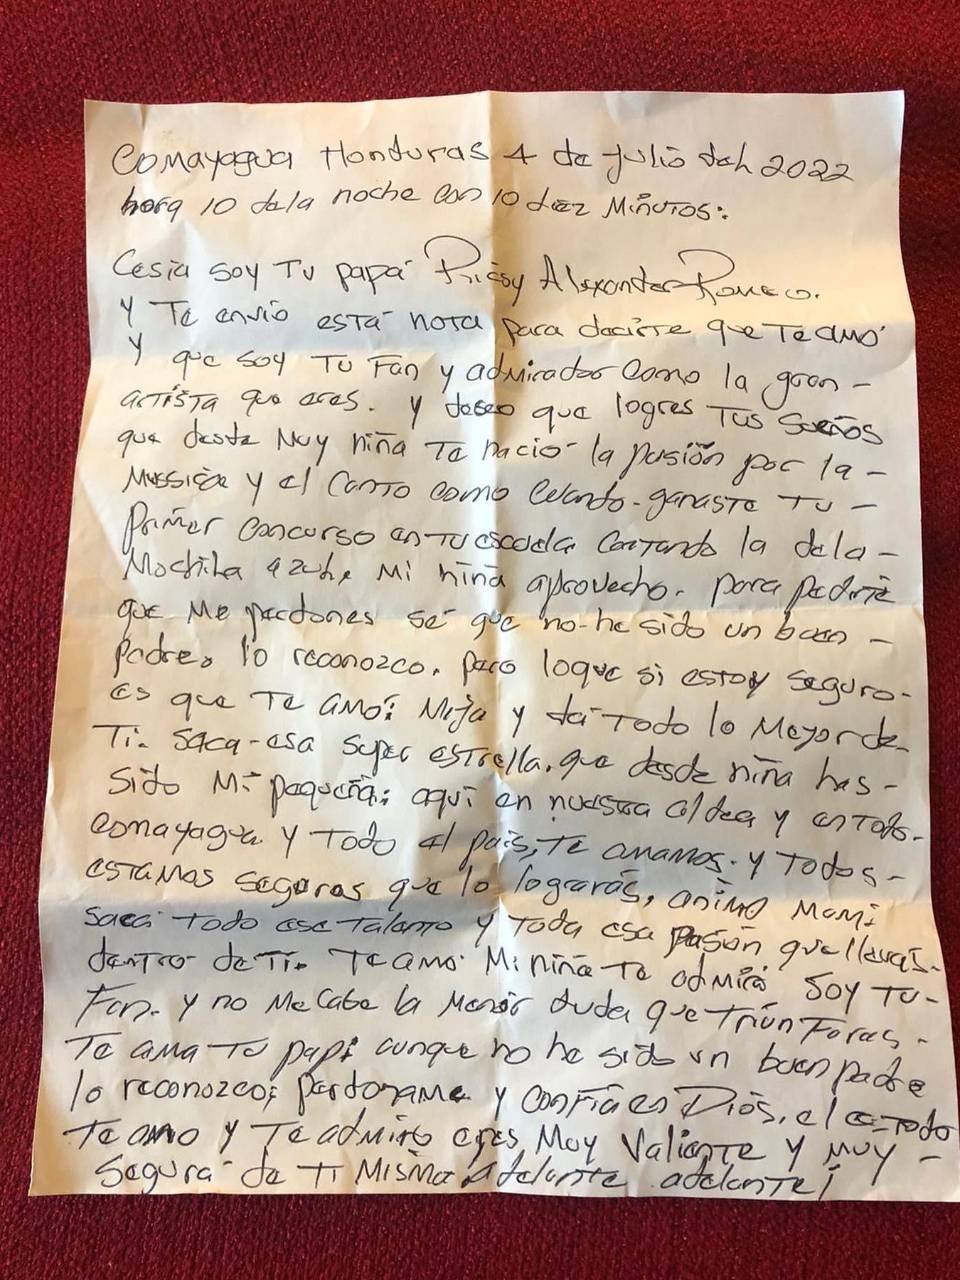 Comayagua Honduras 4 de julio deh 2022
hora 10 dela noche con 10 diez Minutos:
Cesia soy Tu papá Alexander Romeo.
y Te envio está nota para decirte que Te amo
y que soy Tu Fan y admirador como la gran -
artista que eres. y deseo que logres Tus sueños
que desde Muy niña Te nació la pasión por la -
Mussica y el Canto como cuando - ganaste Tu -
Primer concurso en Tu escuela Cantando la dela -
Mochila azuh, Mi niña aprovecho. para pedirte
que Me perdones sé que no - he sido un buen -
Padre, lo reconozco. pero loque si estoy seguro -
es que Te amo; Mija y da Todo lo Mejor de -
Ti. saca - esa super estrella. que desde niña has -
sido Mi pequeña; aquí en nuestra aldea y en todo -
comayagua y Todo el país, Te amamos. y Todos -
estamos seguros que lo lograrás, animo Mami
saca Todo ese Talento y Toda esa Pasión que llevas -
dentro de Ti. Te amo. Mi niña Te admiro soy Tu -
Fan. y no Me cabe la Menor duda que triunFaras -
Te ama Tu papi aunque no he sido un buen padre
lo reconozco; perdoname y conFia en Diós. el es Todo
Te amo y Te admiro eres Muy Valiente y Muy -
segura de Ti Misma Adelante adelante!